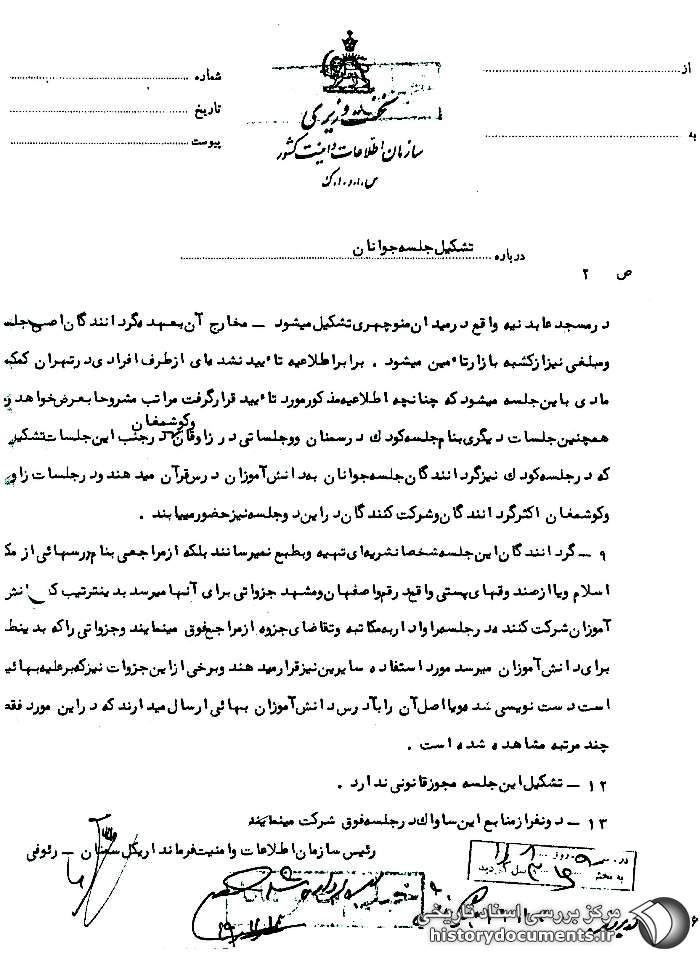 از
به
شماره
تاریخ
پیوست
نخست وزیری
سازمان اطلاعات و امنیت کشور
س.ا.و.ا.ک
درباره تشکیل جلسه جوانان
ص ۲
در مسجد عابدنیه واقع در میدان منوچهری تشکیل میشود – مخارج آن بعهده گردانندگان اصلی جلسه
ومبلغی نیز از کسبه بازار تاًمین میشود . برابر اطلاعیه تائید نشده ای از طرف افرادی در تهران کمک
مادی باین جلسه میشود که چنانچه اطلاعیه مذکور مورد تائید قرار گرفت مراتب مشروحا بعرض خواهد
همچنین جلسات دیگری بنام جلسه کودک در سمنان وجلساتی در زاوقان وکوشمغان در جنب این جلسات تشکیل
که در جلسه کودک نیز گردانندگان جلسه جوانان به دانش آموزان درس قرآن میدهند ودر جلسات
وکوشمغان اکثر گردانندگان وشرکت کنندگان در این دوجلسه نیز حضور مییابند .
۹ – گردانندگان این جلسه شخصا نشریه ای تهیه وبطبع نمیرسانند بلکه از مراجعی بنام درسهائی از
اسلام ویا از صندوقهای پستی واقع در قم واصفهان ومشهد جزواتی برای آنها میرسد بدینترتیب که دانش
آموزان شرکت کننده در جلسه را وادار به مکاتبه وتقاضای جزوه از مراجع فوق مینمایند وجزواتی را که
برای دانش آموزان میرسد مورد استفاده سایرین نیز قرار میدهند وبرخی از این جزوات نیز که برعلیه
است دست نویسی شده ویا اصل آن را بآدرس دانش آموزان بهائی ارسال میدارند که در این مورد فقط
چند مرتبه مشاهده شده است .
۱۲ – تشکیل این جلسه مجوز قانونی ندارد .
۱۳ – دونفر از منابع این ساواک در جلسه فوق شرکت مینمایند
رئیس سازمان اطلاعات وامنیت فرمانداریکل سمنان – رئوفی
مرکز بررسی اسناد تاریخی
historydocuments.ir